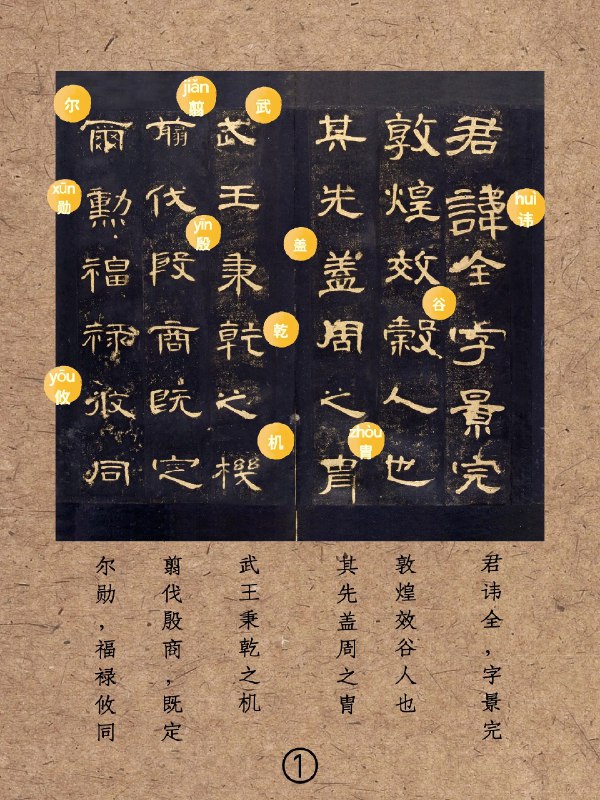 君諱全字景完
敦煌效穀人也
其先蓋周之胄
武王秉乾之機
翦伐殷商既定
爾勳福祿攸同
huì
讳
谷
zhòu
胄
盖
武
乾
机
jiǎn
翦
yīn
殷
尔
xūn
勋
yōu
攸
君讳全，字景完
敦煌效谷人也
其先盖周之胄
武王秉乾之机
翦伐殷商，既定
尔勋，福禄攸同
①